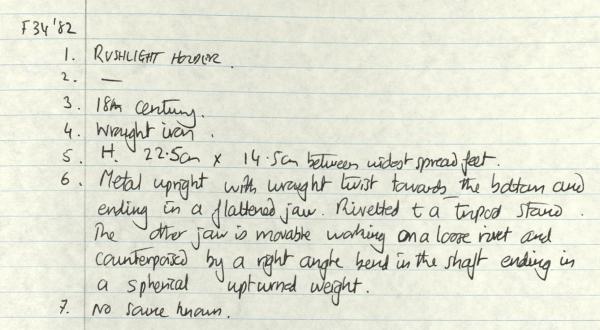 F34'82
1. RUSHLIGHT HOLDER.
2. —
3. 18th century.
4. Wrought iron.
5. H. 22.5cm x 14.5cm between widest spread feet.
6. Metal upright with wrought twist towards the bottom and
ending in a flattened jaw. Rivetted to a tripod stand.
The other jaw is movable working on a loose rivet and
counterpoised by a right angle bend in the shaft ending in
a spherical upturned weight.
7. No source known.